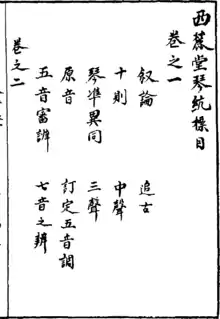 西麓堂琴統標目
卷之一
敘論　追古
十則　中聲
琴準異同　三聲
原音　訂定五音調
五音審辨　七音之辨
卷之二